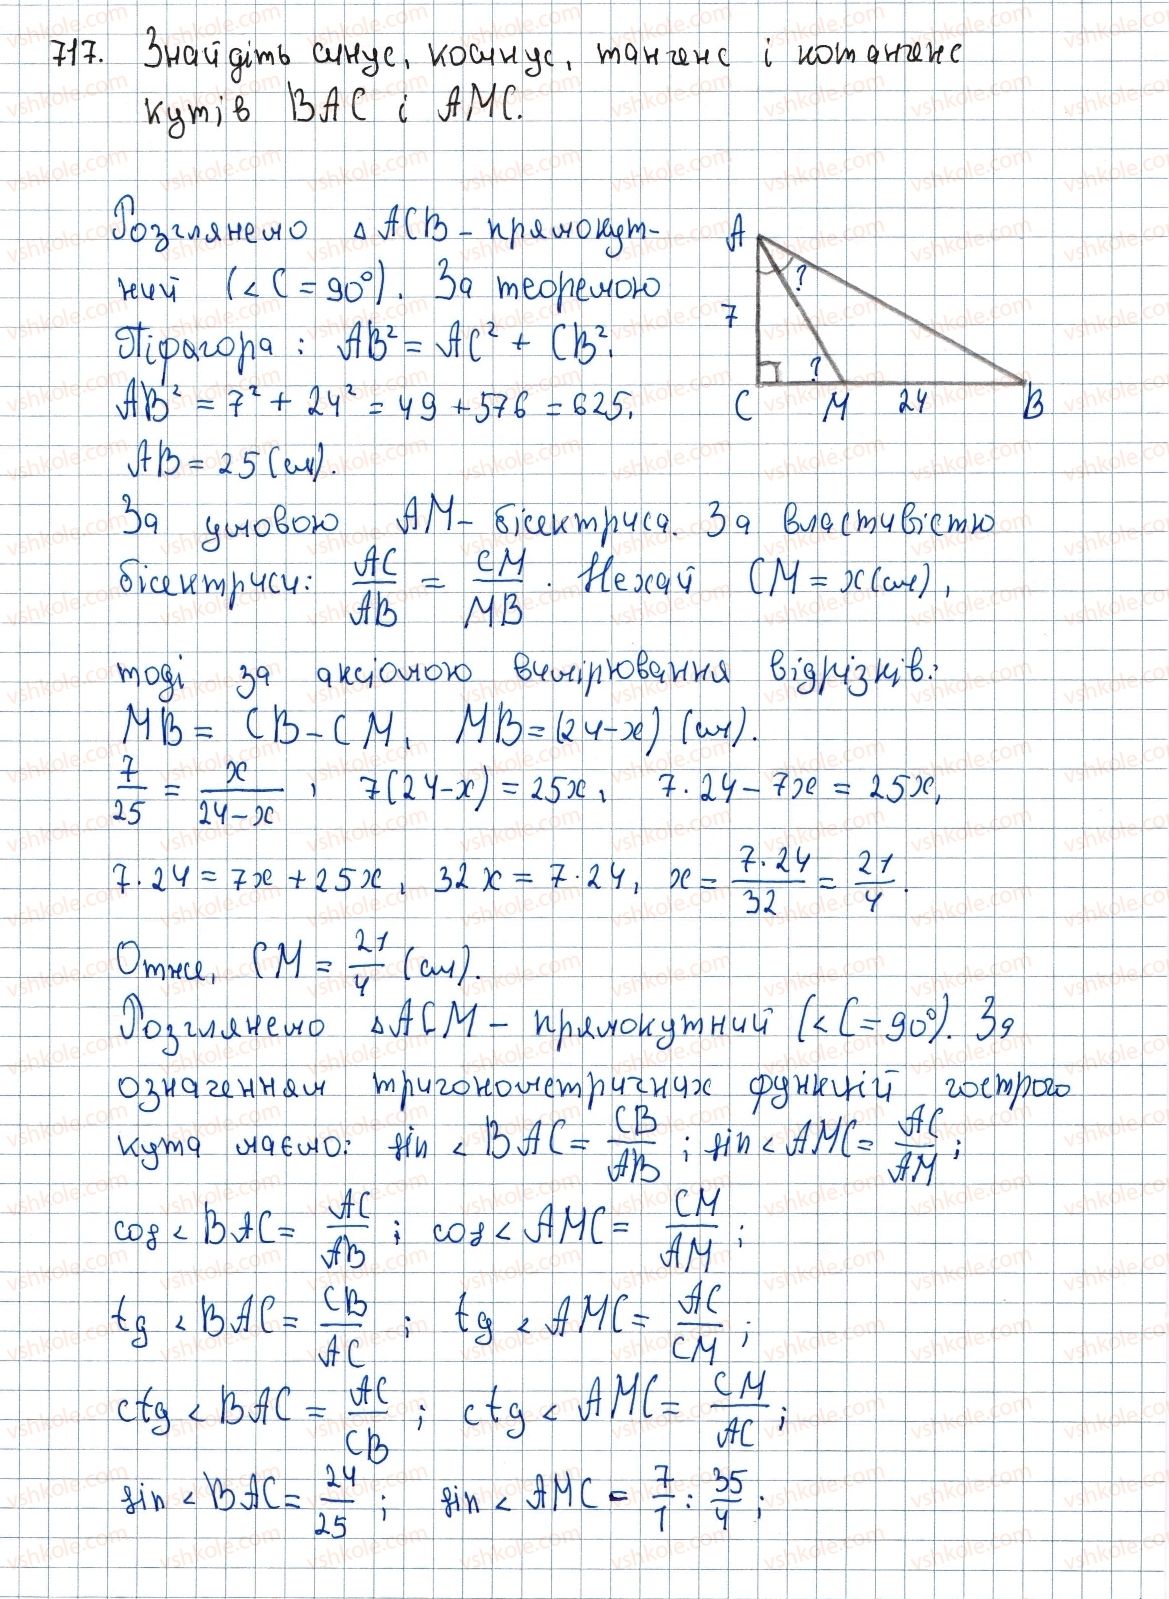 717. Знайдіть синус, косинус, тангенс і котангенс
кутів BAC і AMC.
Розглянемо △ACB – прямокут-
ний (<C = 90°). За теоремою
Піфагора: AB² = AC² + CB².
AB² = 7² + 24² = 49 + 576 = 625.
AB = 25 (см).
A
?
7
?
C M 24 B
За умовою AM – бісектриса. За властивістю
бісектриси: AC/AB = CM/MB. Нехай CM = x (см),
тоді за аксіомою вимірювання відрізків:
MB = CB – CM, MB = (24 – x) (см).
7/25 = x/(24–x), 7(24–x) = 25x, 7·24 – 7x = 25x,
7·24 = 7x + 25x, 32x = 7·24, x = 7·24/32 = 21/4.
Отже, CM = 21/4 (см).
Розглянемо △ACM – прямокутний (<C = 90°). За
означенням тригонометричних функцій гострого
кута маємо: sin < BAC = CB/AB; sin < AMC = AC/AM;
cos < BAC = AC/AB; cos < AMC = CM/AM;
tg < BAC = CB/AC; tg < AMC = AC/CM;
ctg < BAC = AC/CB; ctg < AMC = CM/AC;
sin < BAC = 24/25; sin < AMC = 7/1 : 35/4;
vshkole.com